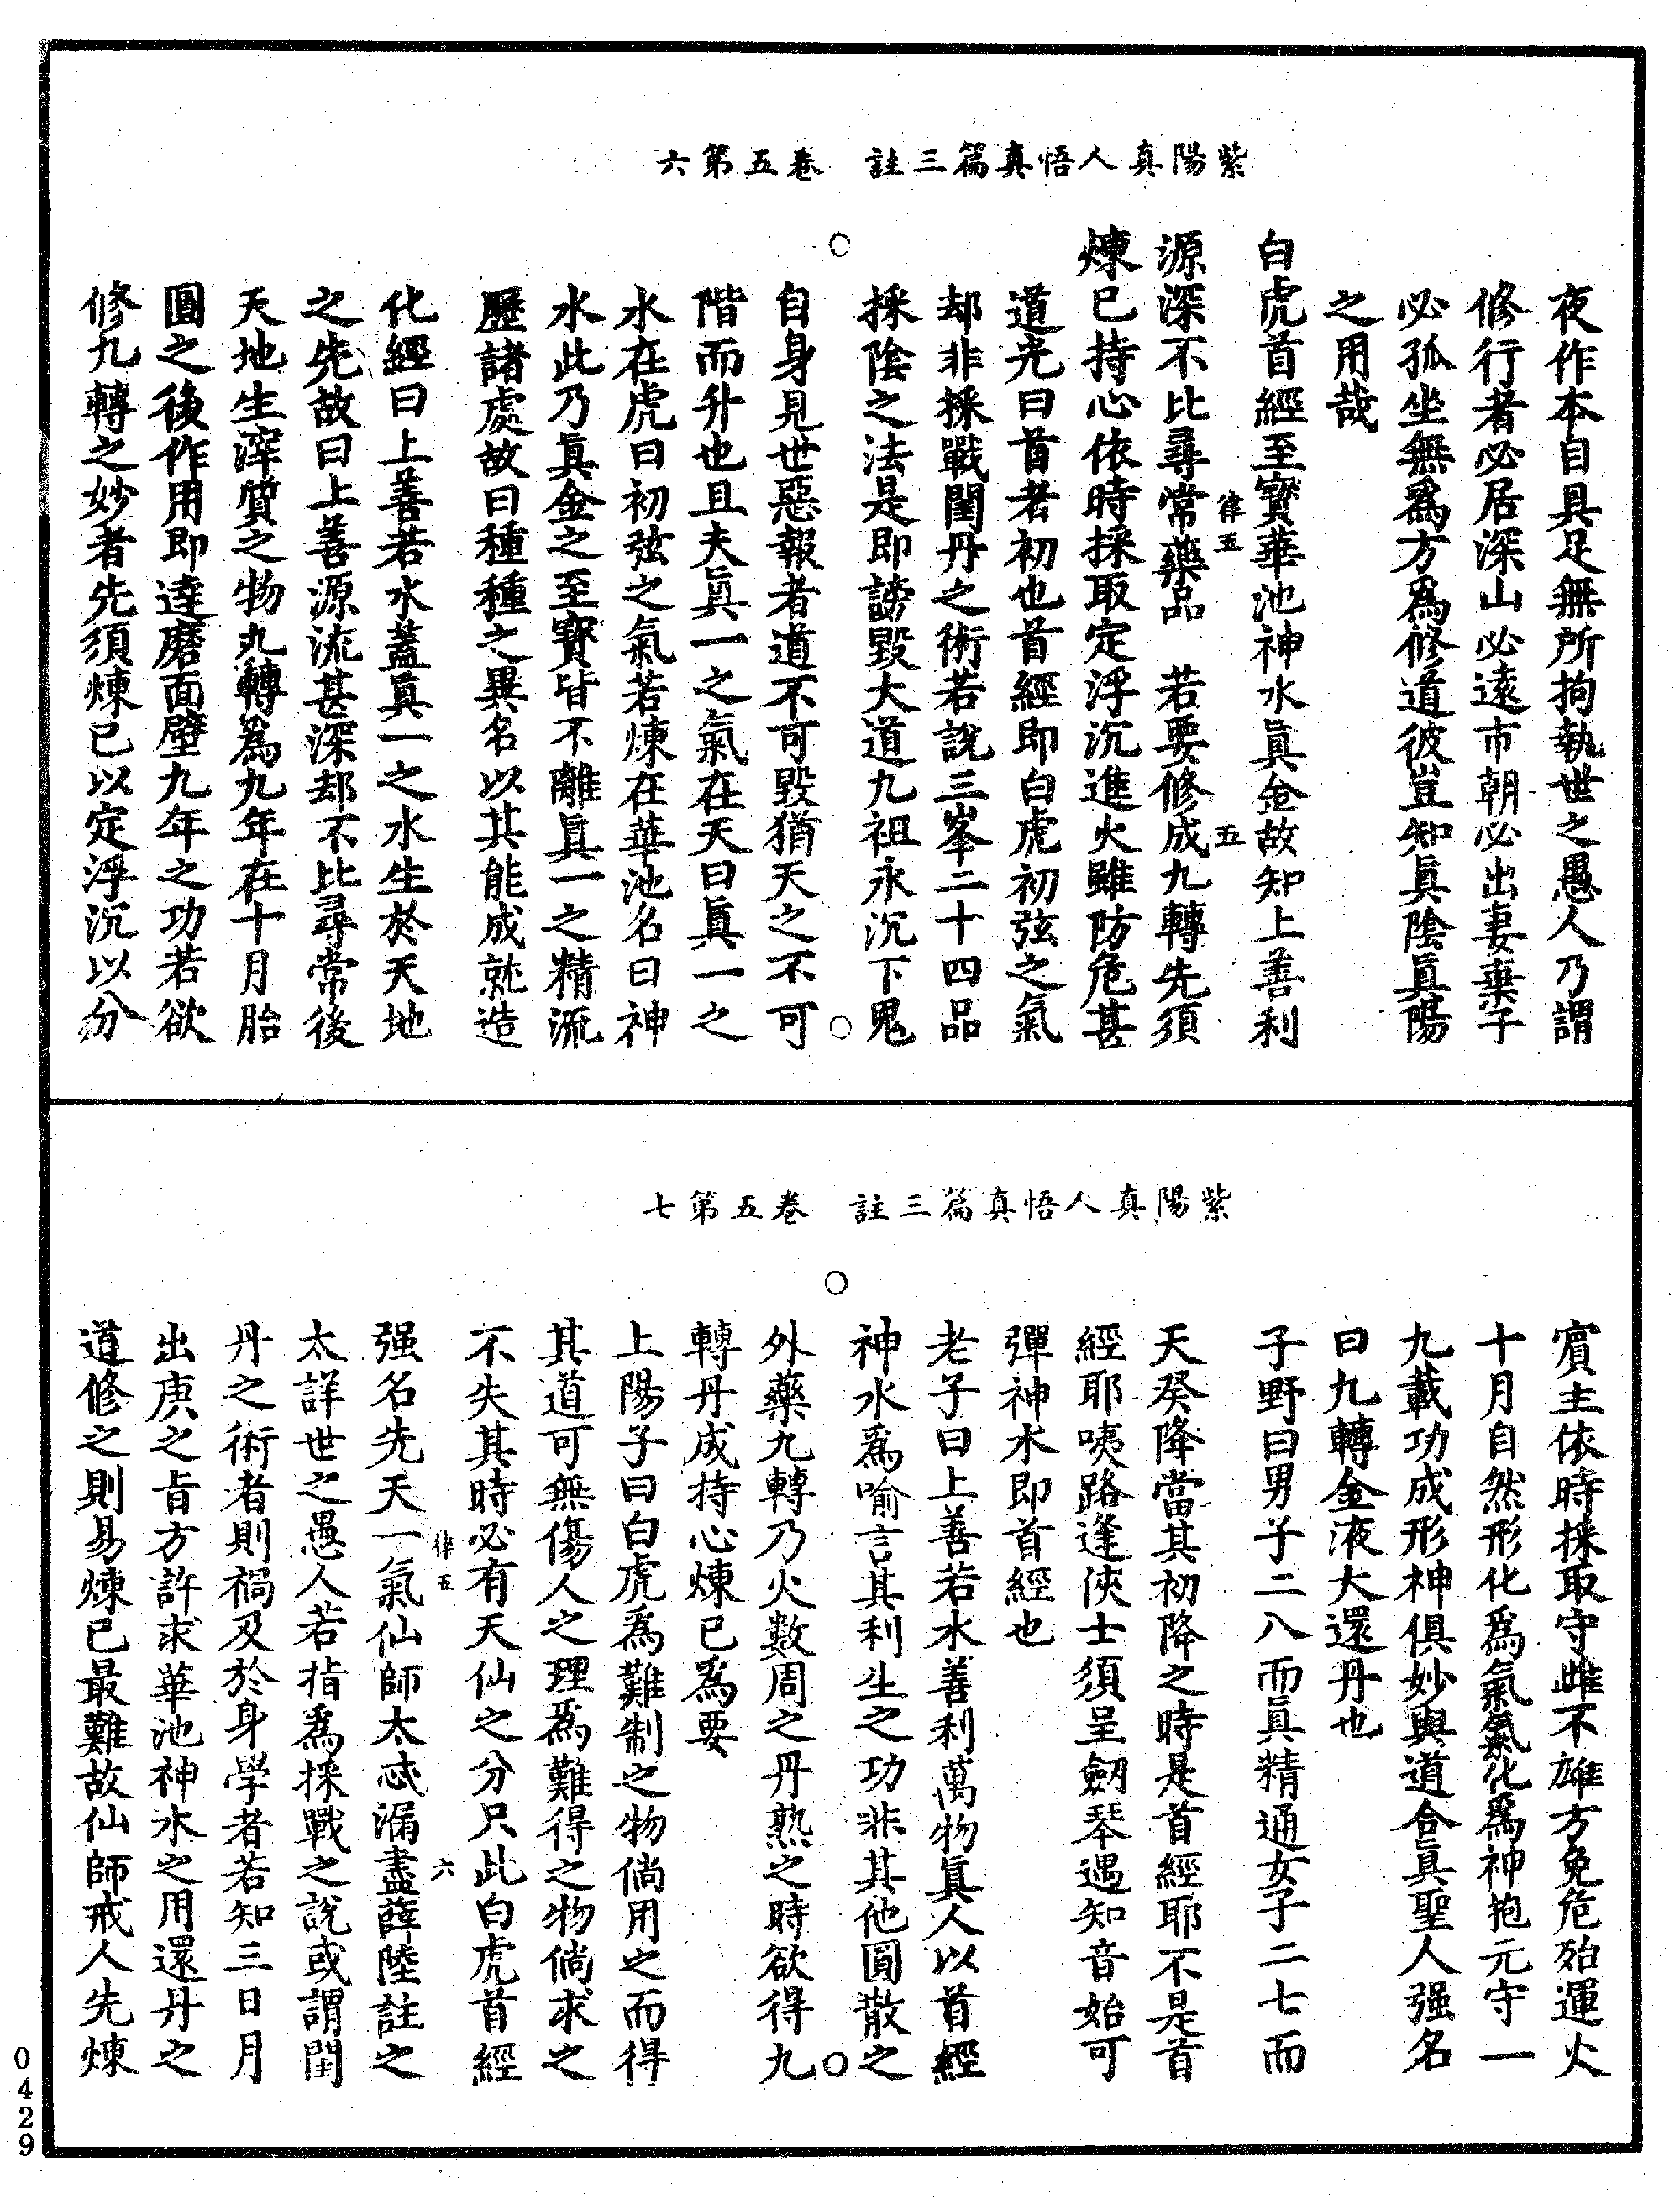 紫陽真人悟真篇三註　卷五第六
夜作本自具足無所拘執世之愚人乃謂
修行者必居深山必遠市朝必出妻棄子
必孤坐無爲方爲修道彼豈知眞陰眞陽
之用哉
白虎首經至寶華池神水眞金故知上善利
源深不比尋常藥品　若要修成九轉先須
煉已持心依時採取定浮沉進火雖防危甚
道光曰首者初也首經即白虎初弦之氣
却非採戰閨丹之術若說三峯二十四品
採陰之法是即謗毀大道九祖永沉下鬼
自身見世惡報者道不可毀猶天之不可
階而升也且夫眞一之氣在天曰眞一之
水在虎曰初弦之氣若煉在華池名曰神
水此乃眞金之至寶皆不離眞一之精流
歷諸處故曰種種之異名以其能成就造
化經曰上善若水蓋眞一之水生於天地
之先故曰上善源流甚深却不比尋常後
天地生滓質之物九轉爲九年在十月胎
圓之後作用即達磨面壁九年之功若欲
修九轉之妙者先須煉已以定浮沉以分
律五
五
紫陽真人悟真篇三註　卷五第七
賓主依時採取守雌不雄方免危殆運火
十月自然形化爲氣氣化爲神抱元守一
九載功成形神俱妙與道合眞聖人强名
曰九轉金液大還丹也
子野曰男子二八而眞精通女子二七而
天癸降當其初降之時是首經耶不是首
經耶咦路逢俠士須呈劒琴遇知音始可
彈神水即首經也
老子曰上善若水善利萬物眞人以首經
神水爲喻言其利生之功非其他圓散之
外藥九轉乃火數周之丹熟之時欲得九
轉丹成持心煉已爲要
上陽子曰白虎爲難制之物倘用之而得
其道可無傷人之理爲難得之物倘求之
不失其時必有天仙之分只此白虎首經
强名先天一氣仙師太忒漏盡薛陸註之
太詳世之愚人若指爲採戰之說或謂閨
丹之術者則禍及於身學者若知三日月
出庚之旨方許求華池神水之用還丹之
道修之則易煉已最難故仙師戒人先煉
律五
六
0429